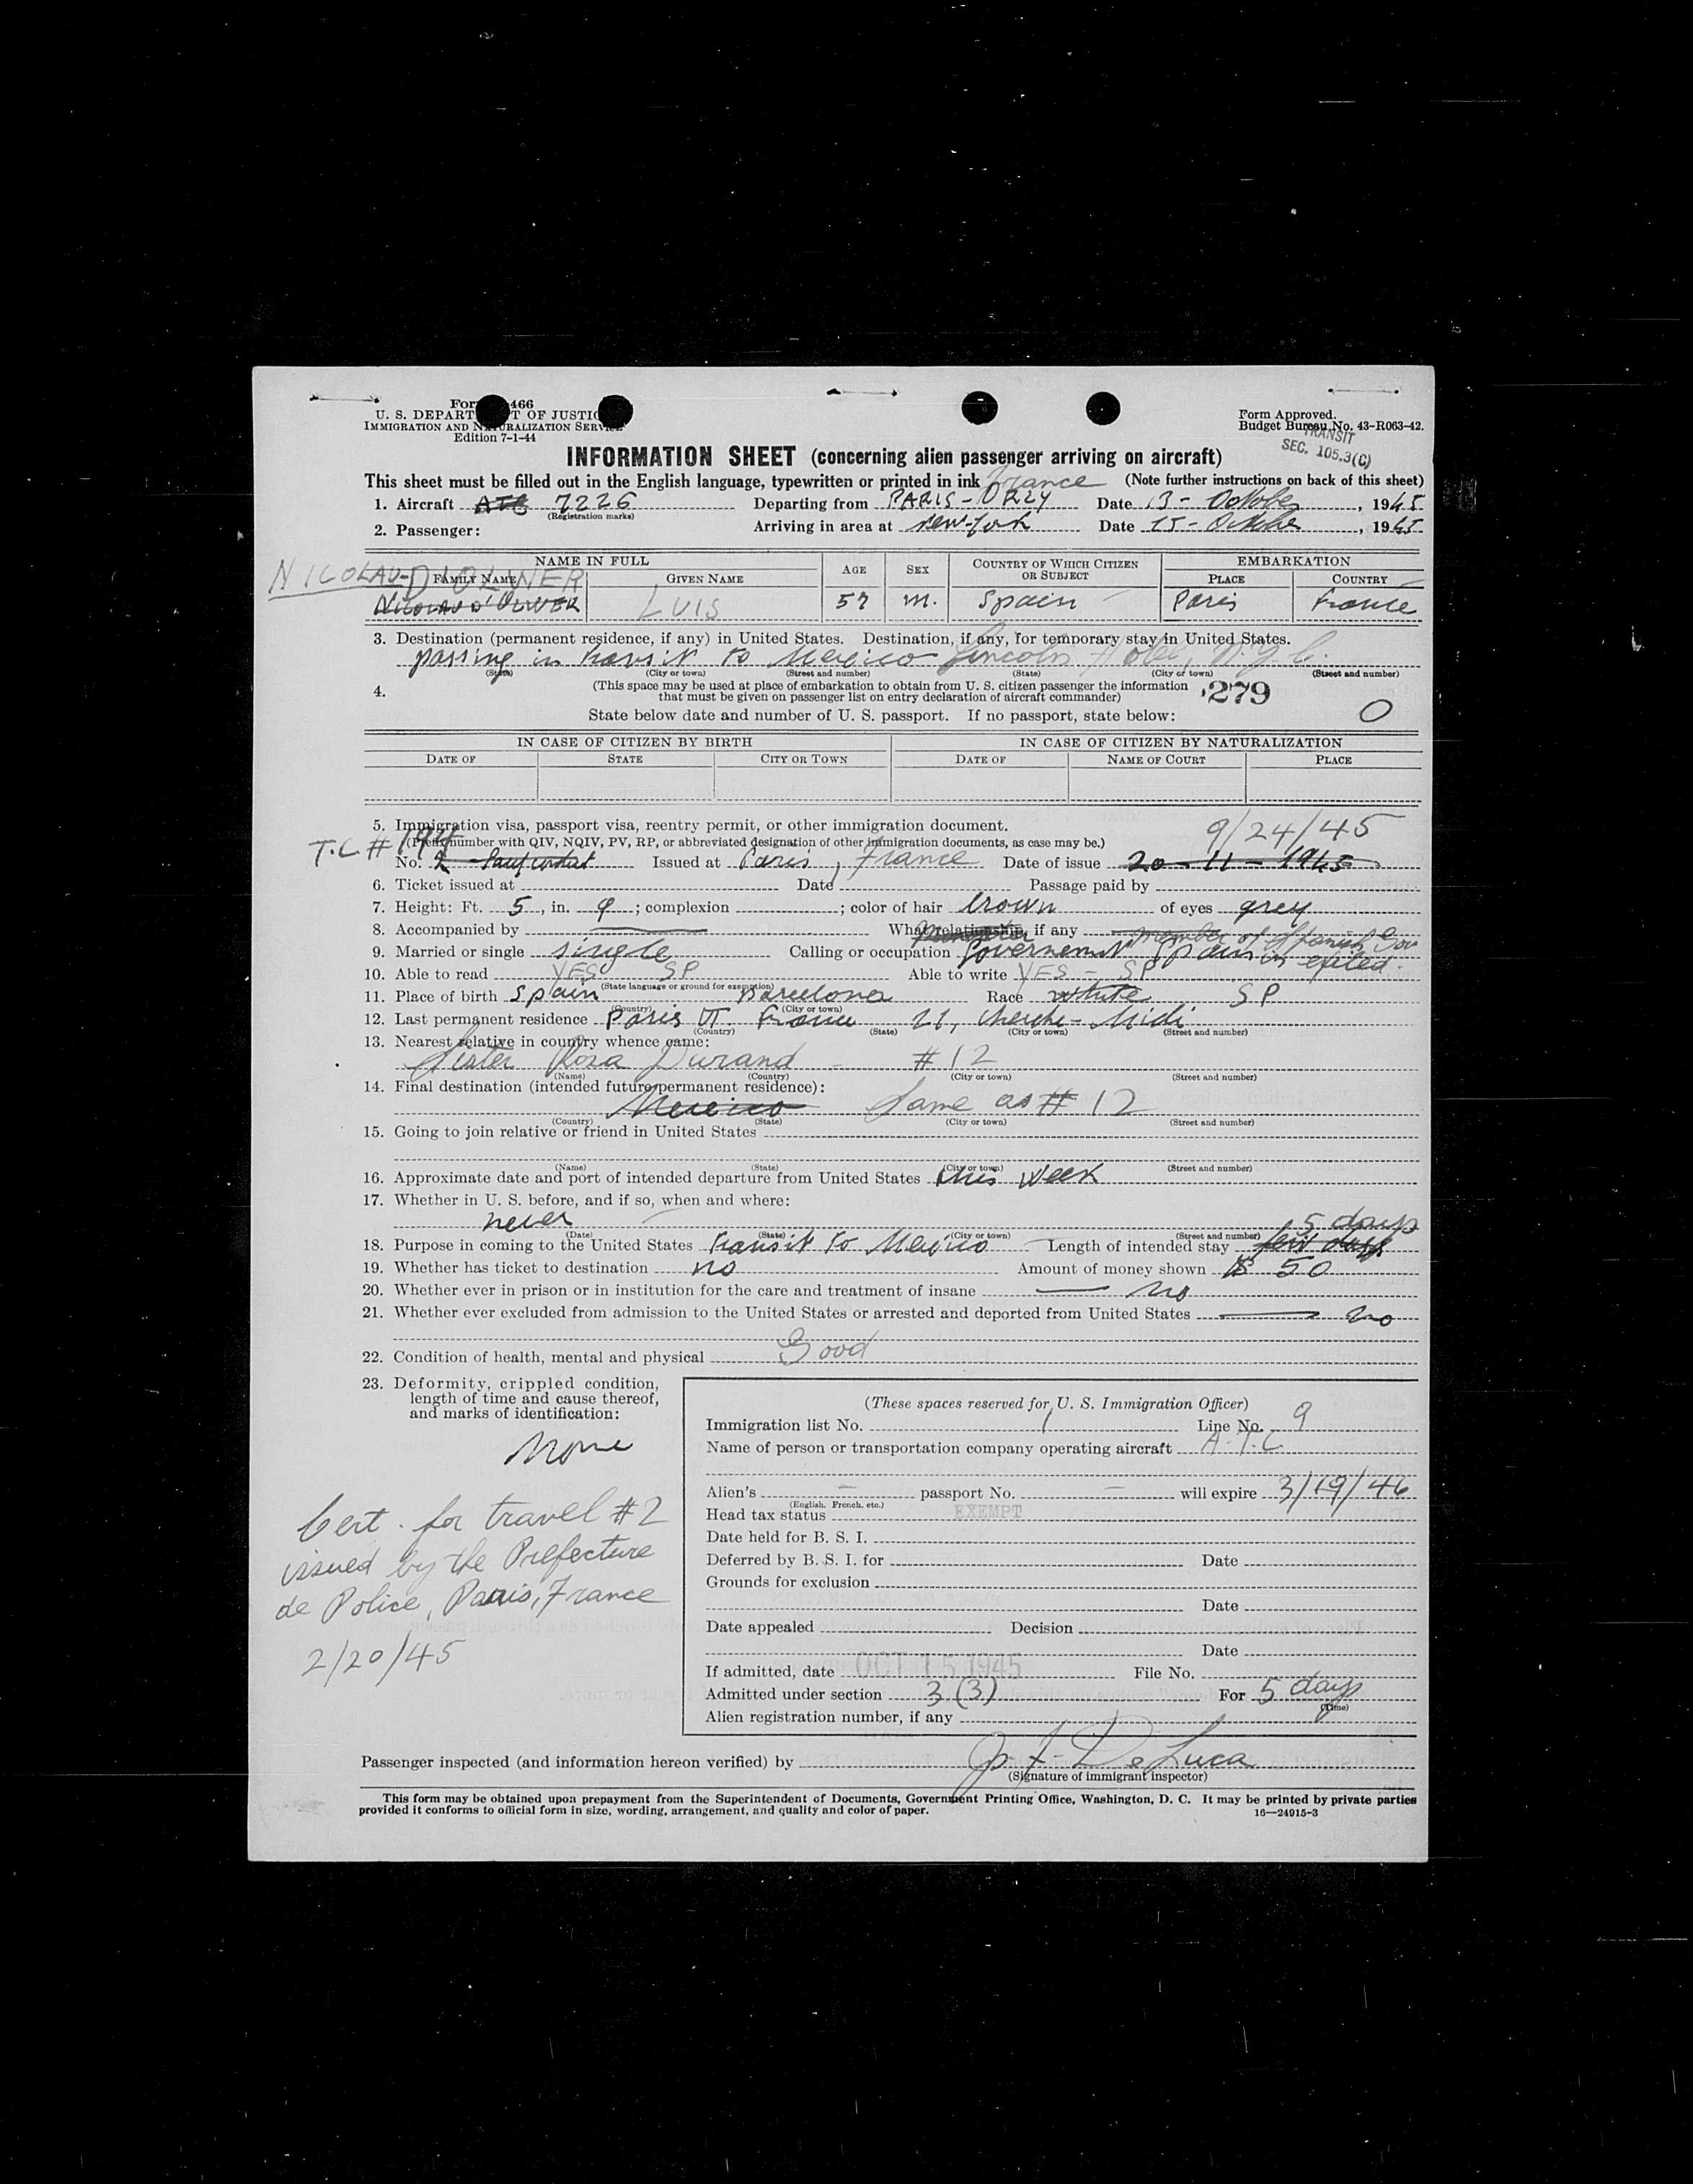 Form 466
U. S. DEPARTMENT OF JUSTICE
IMMIGRATION AND NATURALIZATION SERVICE
Edition 7-1-44
Form Approved.
Budget Bureau No. 43-R063-42.
TRANSIT
SEC. 105.3(C)
INFORMATION SHEET (concerning alien passenger arriving on aircraft)
This sheet must be filled out in the English language, typewritten or printed in ink (Note further instructions on back of this sheet)
France
1. Aircraft ATC 7226 Departing from PARIS-ORLY Date 13 - October, 1945
(Registration marks)
2. Passenger: Arriving in area at New-York Date 15 - October, 1945
NAME IN FULL AGE SEX COUNTRY OF WHICH CITIZEN OR SUBJECT EMBARKATION
FAMILY NAME GIVEN NAME PLACE COUNTRY
NICOLAU-D'OLWER
NICOLAU D'OLWER LUIS 57 M. Spain Paris France
3. Destination (permanent residence, if any) in United States. Destination, if any, for temporary stay in United States.
passing in transit to Mexico Lincoln Hotel, N.Y.C.
(State) (City or town) (Street and number) (State) (City or town) (Street and number)
4. (This space may be used at place of embarkation to obtain from U. S. citizen passenger the information
that must be given on passenger list on entry declaration of aircraft commander) 279
State below date and number of U. S. passport. If no passport, state below: O
IN CASE OF CITIZEN BY BIRTH IN CASE OF CITIZEN BY NATURALIZATION
DATE OF STATE CITY OR TOWN DATE OF NAME OF COURT PLACE
5. Immigration visa, passport visa, reentry permit, or other immigration document. 9/24/45
T.C # 194 (Prefix number with QIV, NQIV, PV, RP, or abbreviated designation of other immigration documents, as case may be.)
No. 2 Issued at Paris, France Date of issue 20 - 11 - 1945
6. Ticket issued at Date Passage paid by
7. Height: Ft. 5, in. 9; complexion ; color of hair brown of eyes grey
8. Accompanied by What relationship, if any
member of Spanish Gov
9. Married or single single Calling or occupation Governement Spain in exiled.
10. Able to read YES SP Able to write YES - SP
(State language or ground for exemption)
11. Place of birth Spain Barcelona Race white SP
(Country) (City or town)
12. Last permanent residence Paris VI. France 21, Cherche-Midi
(Country) (State) (City or town) (Street and number)
13. Nearest relative in country whence came:
Sister Rosa Durand - #12
(Name) (Country) (City or town) (Street and number)
14. Final destination (intended future permanent residence):
Mexico Same as #12
(Country) (State) (City or town) (Street and number)
15. Going to join relative or friend in United States
(Name) (State) (City or town) (Street and number)
16. Approximate date and port of intended departure from United States this week
17. Whether in U. S. before, and if so, when and where:
never 5 days
(Date) (State) (City or town) (Street and number)
18. Purpose in coming to the United States transit to Mexico Length of intended stay few days
19. Whether has ticket to destination no Amount of money shown $ 50
20. Whether ever in prison or in institution for the care and treatment of insane no
21. Whether ever excluded from admission to the United States or arrested and deported from United States no
22. Condition of health, mental and physical Good
23. Deformity, crippled condition,
length of time and cause thereof,
and marks of identification:
None
Cert. for travel #2
issued by the Prefecture
de Police, Paris, France
2/20/45
(These spaces reserved for U. S. Immigration Officer)
Immigration list No. 1 Line No. 9
Name of person or transportation company operating aircraft A.T.C
Alien's - passport No. - will expire 3/19/46
(English, French, etc.)
Head tax status EXEMPT
Date held for B. S. I.
Deferred by B. S. I. for Date
Grounds for exclusion
Date
Date appealed Decision
Date
If admitted, date OCT 15 1945 File No.
Admitted under section 3 (3) For 5 days
(Time)
Alien registration number, if any
Passenger inspected (and information hereon verified) by J. F. De Luca
(Signature of immigrant inspector)
This form may be obtained upon prepayment from the Superintendent of Documents, Government Printing Office, Washington, D. C. It may be printed by private parties
provided it conforms to official form in size, wording, arrangement, and quality and color of paper. 16—24915-3